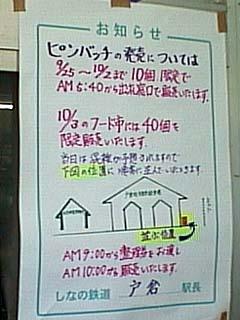 お知らせ
ピンバッチの発売については
9/25～10/2まで10個限定で
AM5:40から出札窓口で販売いたします。
10/3のフード市には40個を
限定販売いたします。
当日は混雑が予想されますので
下図の位置に順番に並んでいただきます。
並ぶ位置
AM9:00から整理券をお渡し
AM10:00から販売いたします。
しなの鉄道 戸倉 駅長